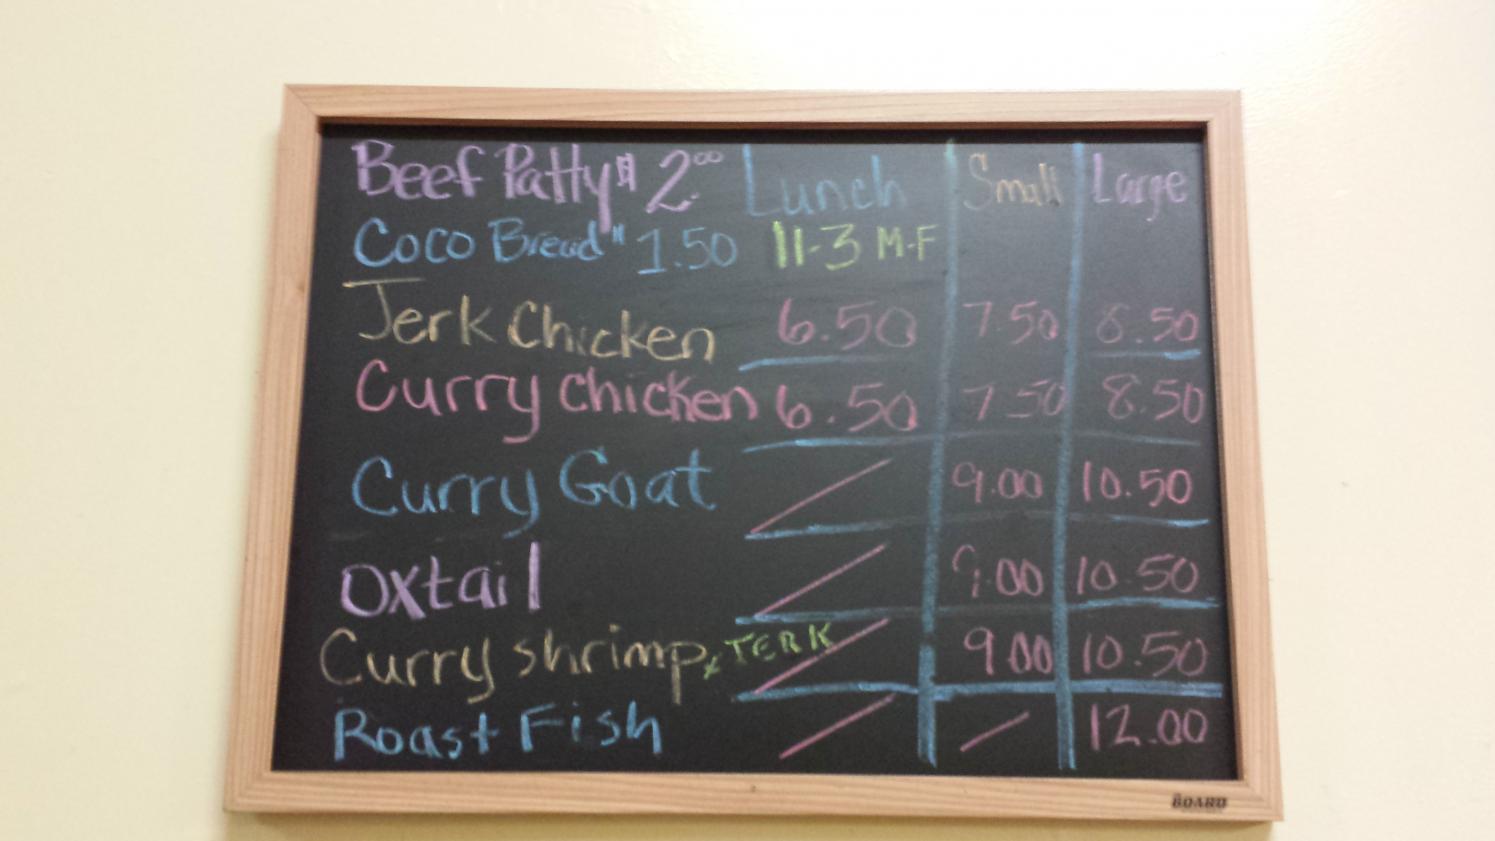 Beef Patty $ 2.00 Lunch Small Large
Coco Bread " 1.50 11-3 M-F
Jerk Chicken 6.50 7.50 8.50
Curry Chicken 6.50 7.50 8.50
Curry Goat / 9.00 10.50
Oxtail / 9.00 10.50
Curry Shrimp x JERK / 9.00 10.50
Roast Fish / / 12.00
BOARD